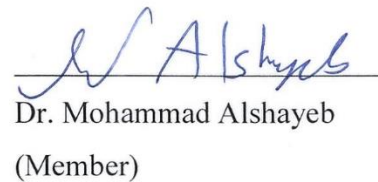 M Alshayeb
Dr. Mohammad Alshayeb
(Member)